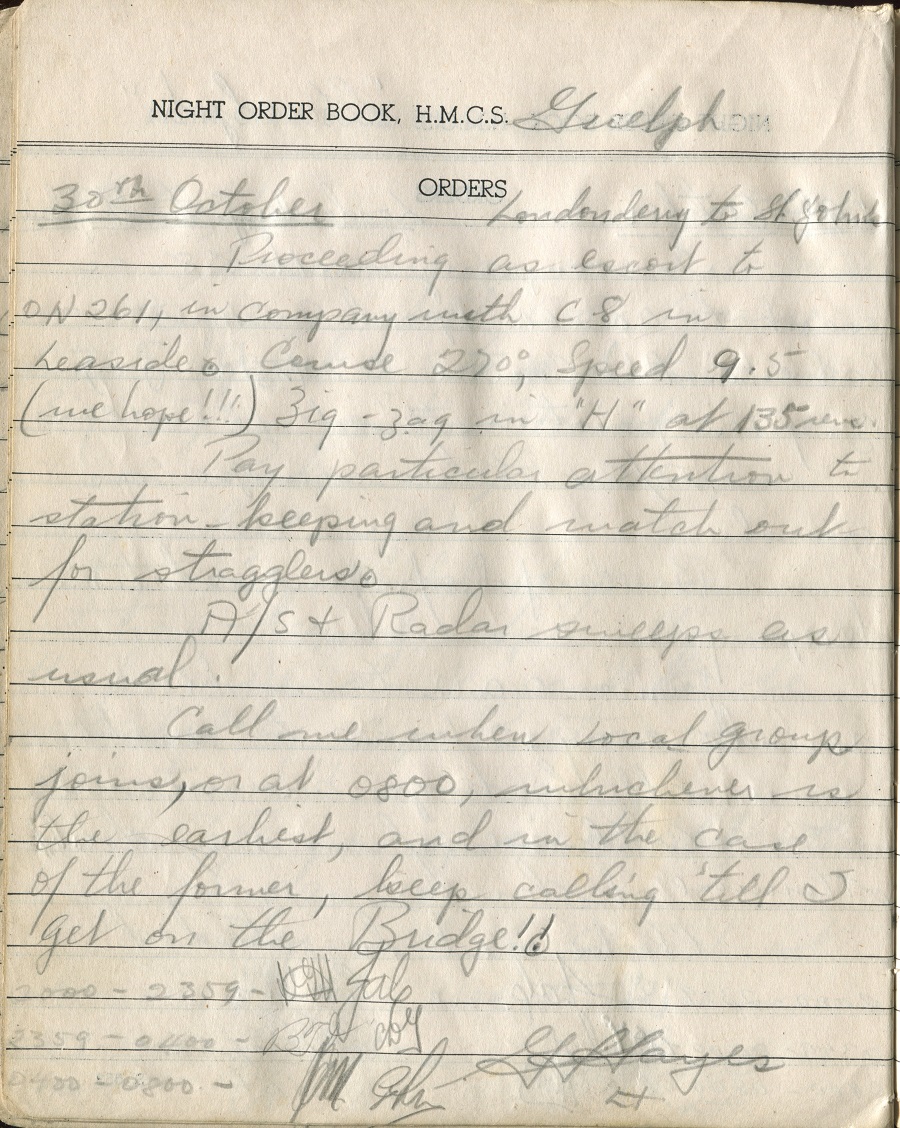 NIGHT ORDER BOOK, H.M.C.S. Guelph
ORDERS
30th October Londonderry to St. John's
Proceeding as escort to
ON 261, in company with C 8 in
Leaside. Course 270°, Speed 9.5
(we hope!!!) Zig-zag in "H" at 135 revs.
Pay particular attention to
station-keeping and watch out
for stragglers.
A/S + Radar sweeps as
usual.
Call me when local group
joins, or at 0800, whichever is
the earliest, and in the case
of the former, keep calling 'till I
get on the Bridge!!
2000 - 2359 -
2359 - 0400 -
0400 - 0800 -
G Hayes
Lt